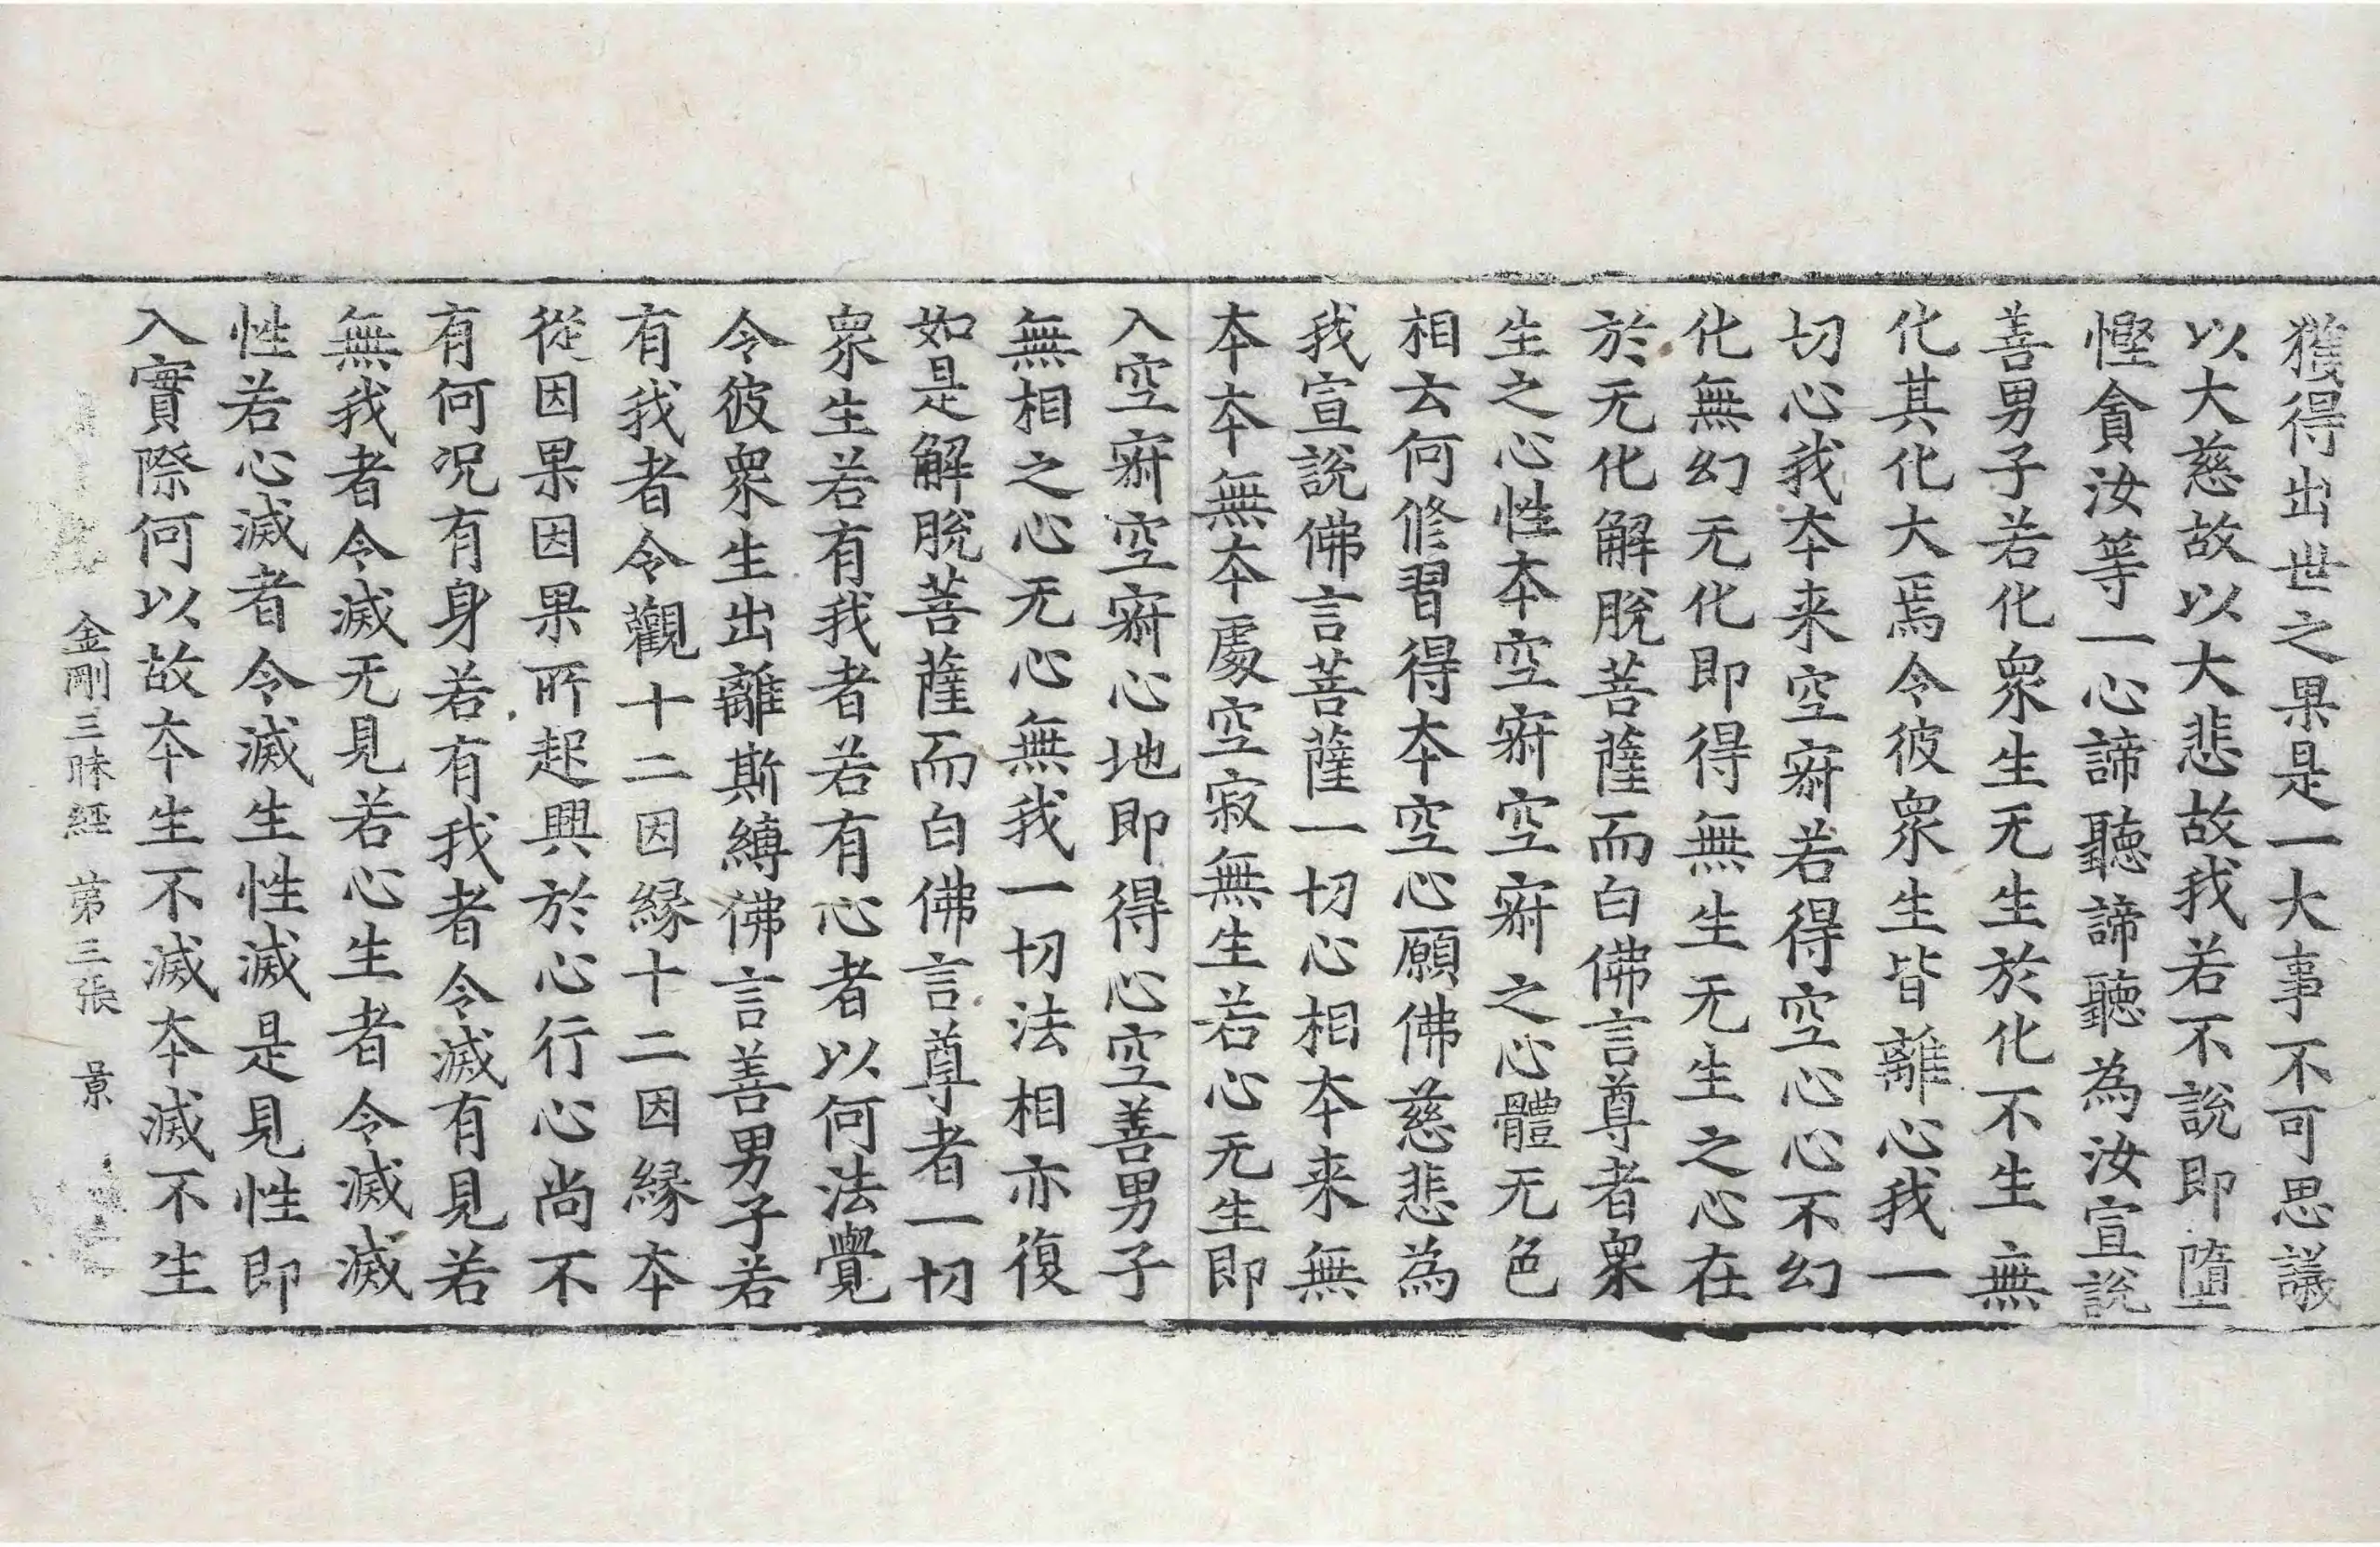 獲得出世之果是一大事不可思議
以大慈故以大悲故我若不說即墮
慳貪汝等一心諦聽諦聽為汝宣說
善男子若化衆生无生於化不生無
化其化大焉令彼衆生皆離心我一
切心我夲来空㝛若得空心心不幻
化無幻无化即得無生无生之心在
於无化解脫菩薩而白佛言尊者衆
生之心性夲空空㝛空㝛之心體无色
相云何修習得夲空心願佛慈悲為
我宣說佛言菩薩一切心相夲来無
夲夲無夲處空寂無生若心无生即
入空㝛空㝛心地即得心空善男子
無相之心无心無我一切法相亦復
如是解脫菩薩而白佛言尊者一切
衆生若有我者若有心者以何法覺
令彼衆生出離斯縛佛言善男子若
有我者令觀十二因縁十二因縁夲
從因果因果所起興於心行心尚不
有何况有身若有我者令滅有見若
無我者令滅无見若心生者令滅滅
性若心滅者令滅生性滅是見性即
入實際何以故夲生不滅夲滅不生
金剛三昧經 第三張 景